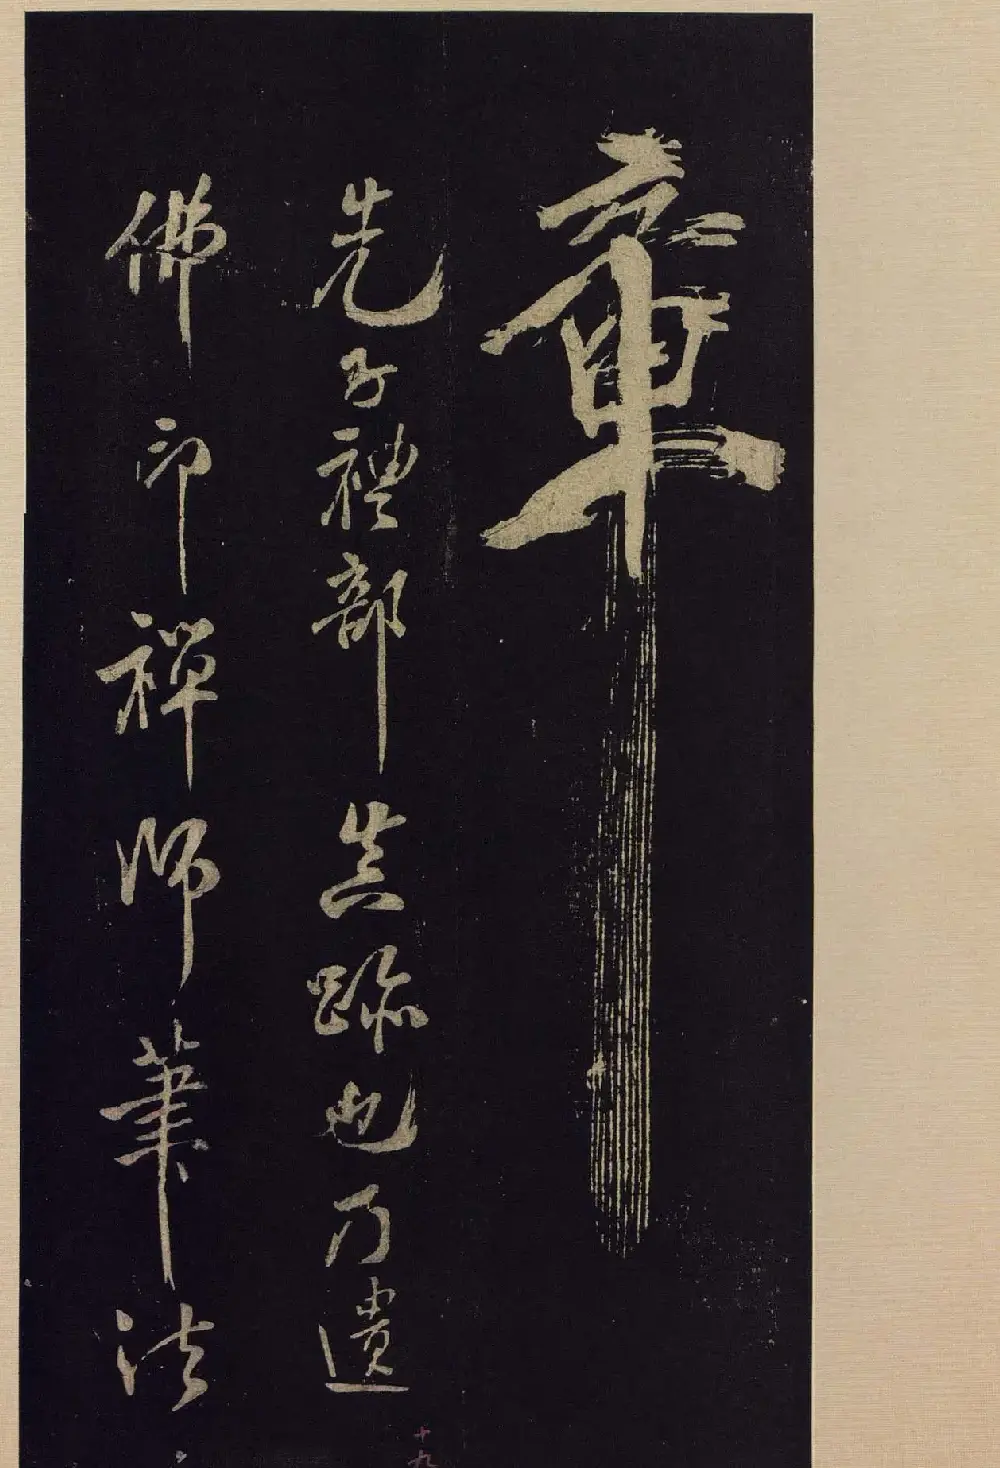 章
先子禮部真跡也乃遺
佛印禪師筆法
十九